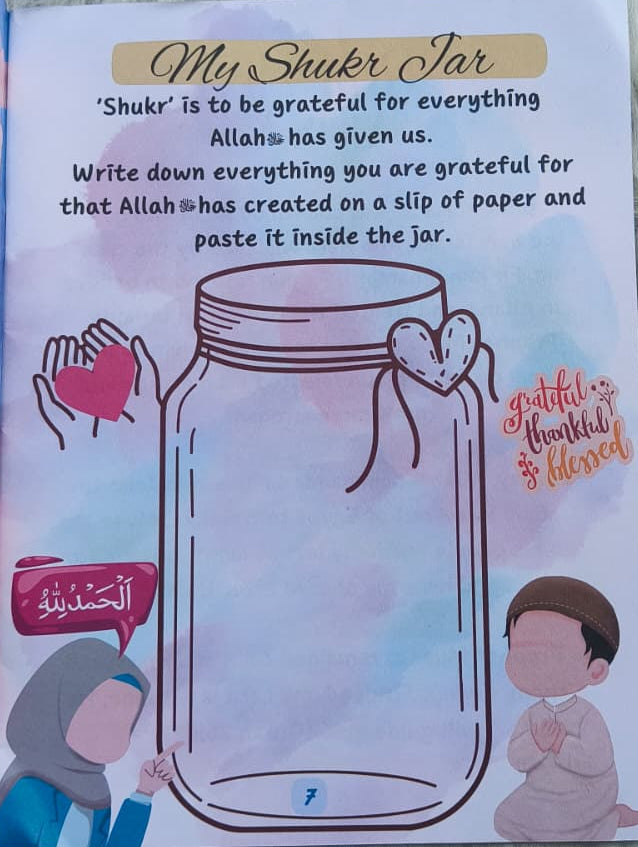 My Shukr Jar
'Shukr' is to be grateful for everything
Allahﷻ has given us.
Write down everything you are grateful for
that Allahﷻ has created on a slip of paper and
paste it inside the jar.
grateful
thankful
blessed
اَلْحَمْدُلِلّٰهِ
7